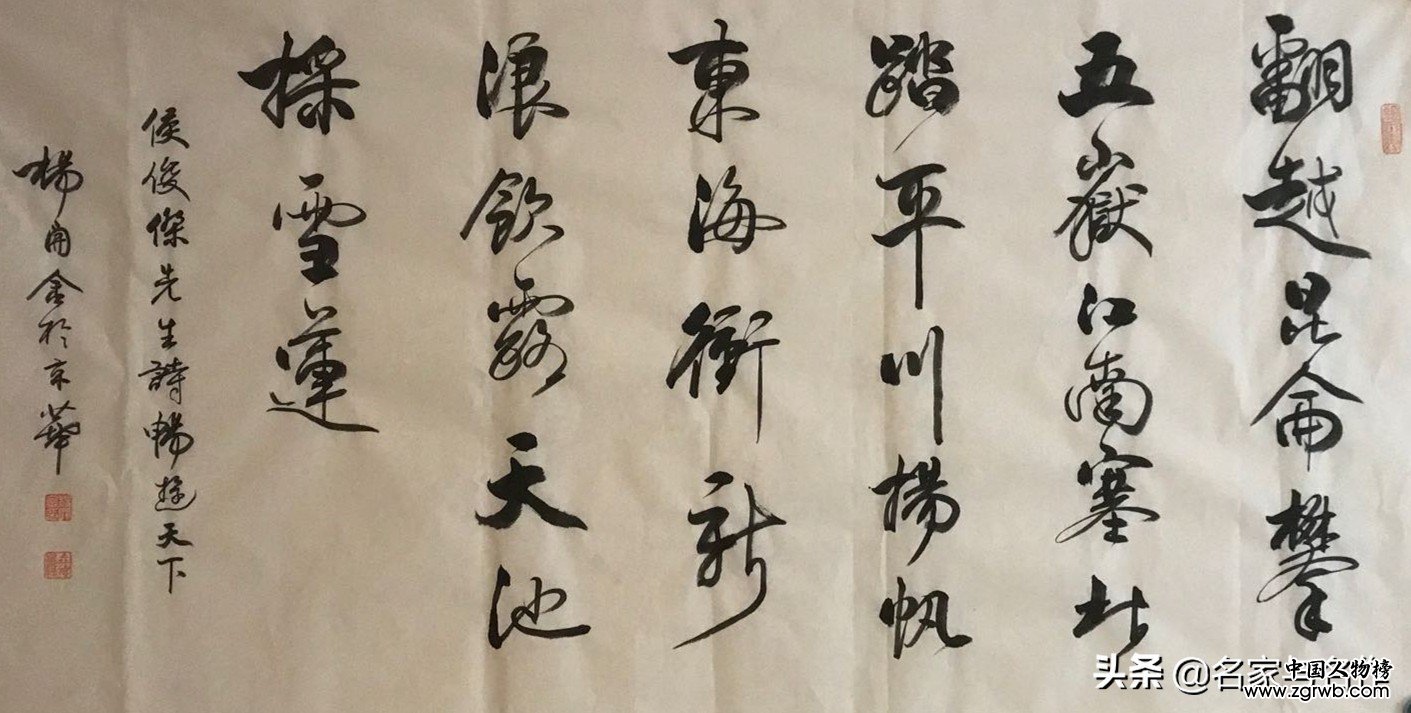 翻越昆侖攀
五嶽江南塞北
踏平川揚帆
東海衝新
浪飲露天池
採雪蓮
侯俊傑先生詩暢遊天下
楊甬金於京華
头条 @名家
中国人物榜
www.zgrwb.com